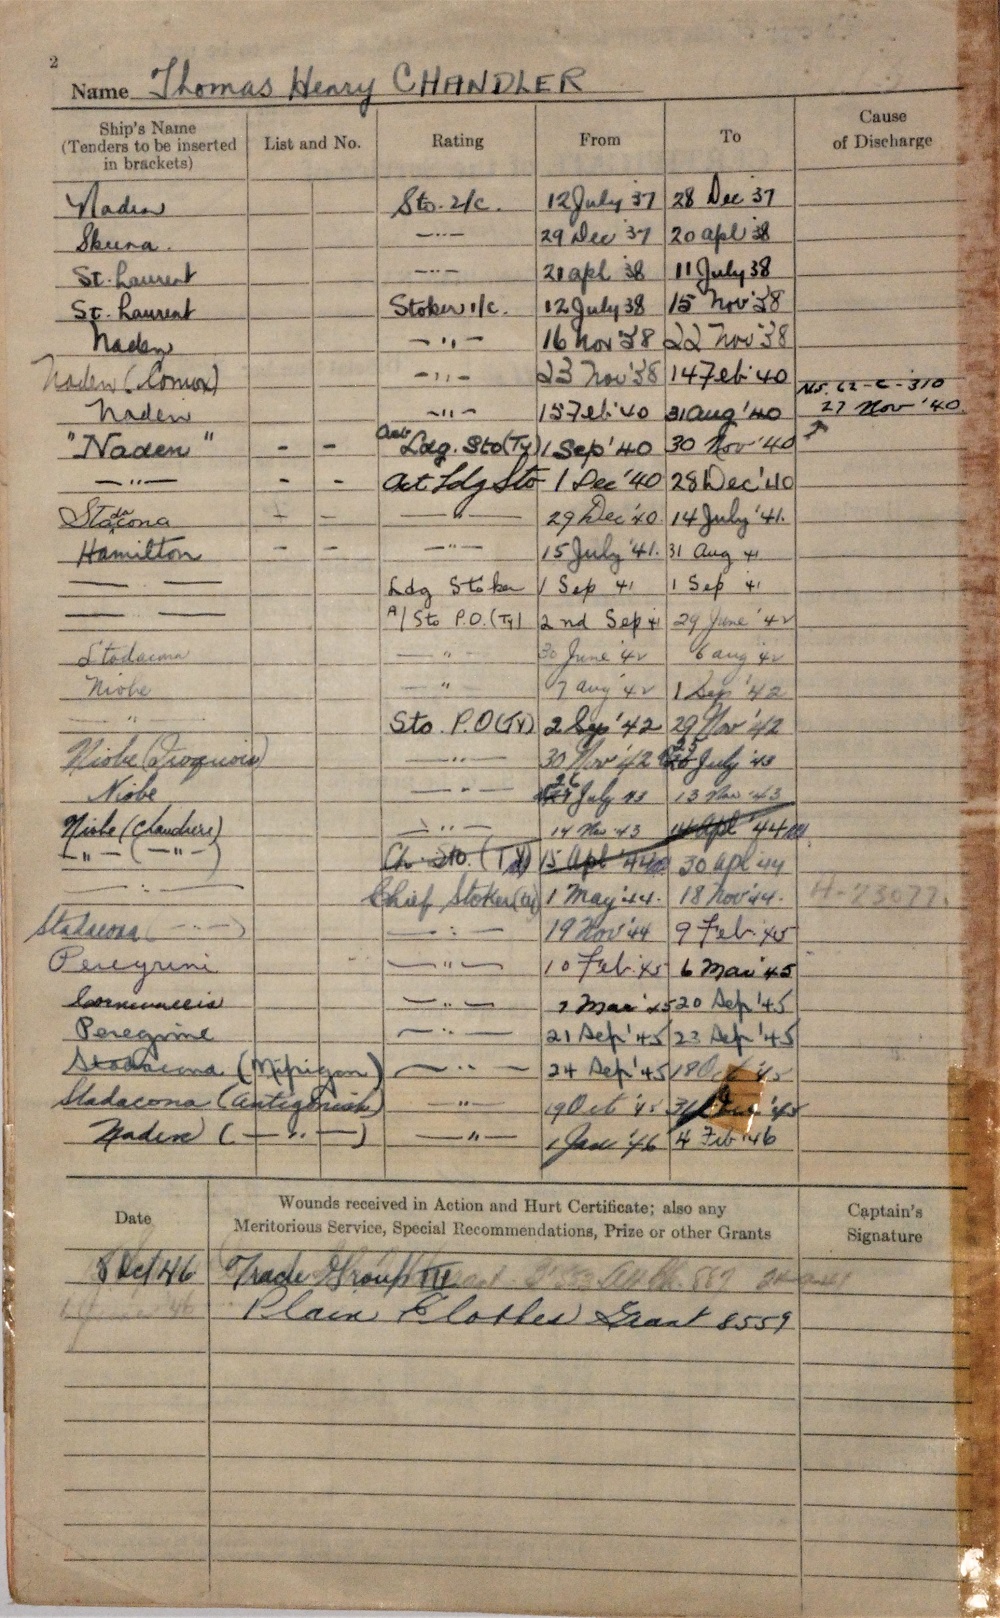 2
Name Thomas Henry CHANDLER
Ship's Name (Tenders to be inserted in brackets) List and No. Rating From To Cause of Discharge
Naden Sto. 2/c. 12 July '37 28 Dec '37
Skeena. —··— 29 Dec '37 20 apl '38
St. Laurent —··— 21 apl '38 11 July 38
St. Laurent Stoker 1/c. 12 July 38 15 Nov '38
Naden —··— 16 Nov '38 22 Nov '38
Naden (Comox) —··— 23 Nov '38 14 Feb '40
Naden —··— 15 Feb '40 31 Aug '40 NS. 62-C-310 27 Nov '40.
"Naden" - - Ldg. Sto (Ty) 1 Sep '40 30 Nov '40
—··— - - Act Ldg Sto 1 Dec '40 28 Dec '40
Stadacona - - —··— 29 Dec '40 14 July '41.
Hamilton - - —··— 15 July '41. 31 Aug 41
— — Ldg Stoker 1 Sep 41 1 Sep 41
— — A/ Sto P.O. (Ty) 2nd Sep 41 29 June '42
Stadacona —··— 30 June '42 6 aug '42
Niobe —··— 7 aug '42 1 Sep '42
—··— Sto. P.O (TY) 2 Sep '42 29 Nov '42
Niobe (Iroquois) —··— 30 Nov '42 25 July '43
Niobe —··— 26 July 43 13 Nov '43
Niobe (Chaudiere) —··— 14 Nov '43 14 Apl '44
—··— (—··—) Ch. Sto. (TY) 15 Apl '44 30 apl '44
—··— Chief Stoker (Ty) 1 May '44. 18 Nov '44. H-23077.
Stadacona (—··—) —··— 19 Nov '44 9 Feb. 45
Peregrine —··— 10 Feb. 45 6 Mar '45
Cornwallis —··— 7 Mar '45 20 Sep '45
Peregrine —··— 21 Sep '45 23 Sep '45
Stadacona (Nipigon) —··— 24 Sep '45 18 Oct '45
Stadacona (Antigonish) —··— 19 Oct '45 31 Dec '45
Naden (—··—) —··— 1 Jan '46 4 Feb '46
Date Wounds received in Action and Hurt Certificate; also any Meritorious Service, Special Recommendations, Prize or other Grants Captain's Signature
8 Oct 46 Trade Group III
Plain Clothes Grant 8559